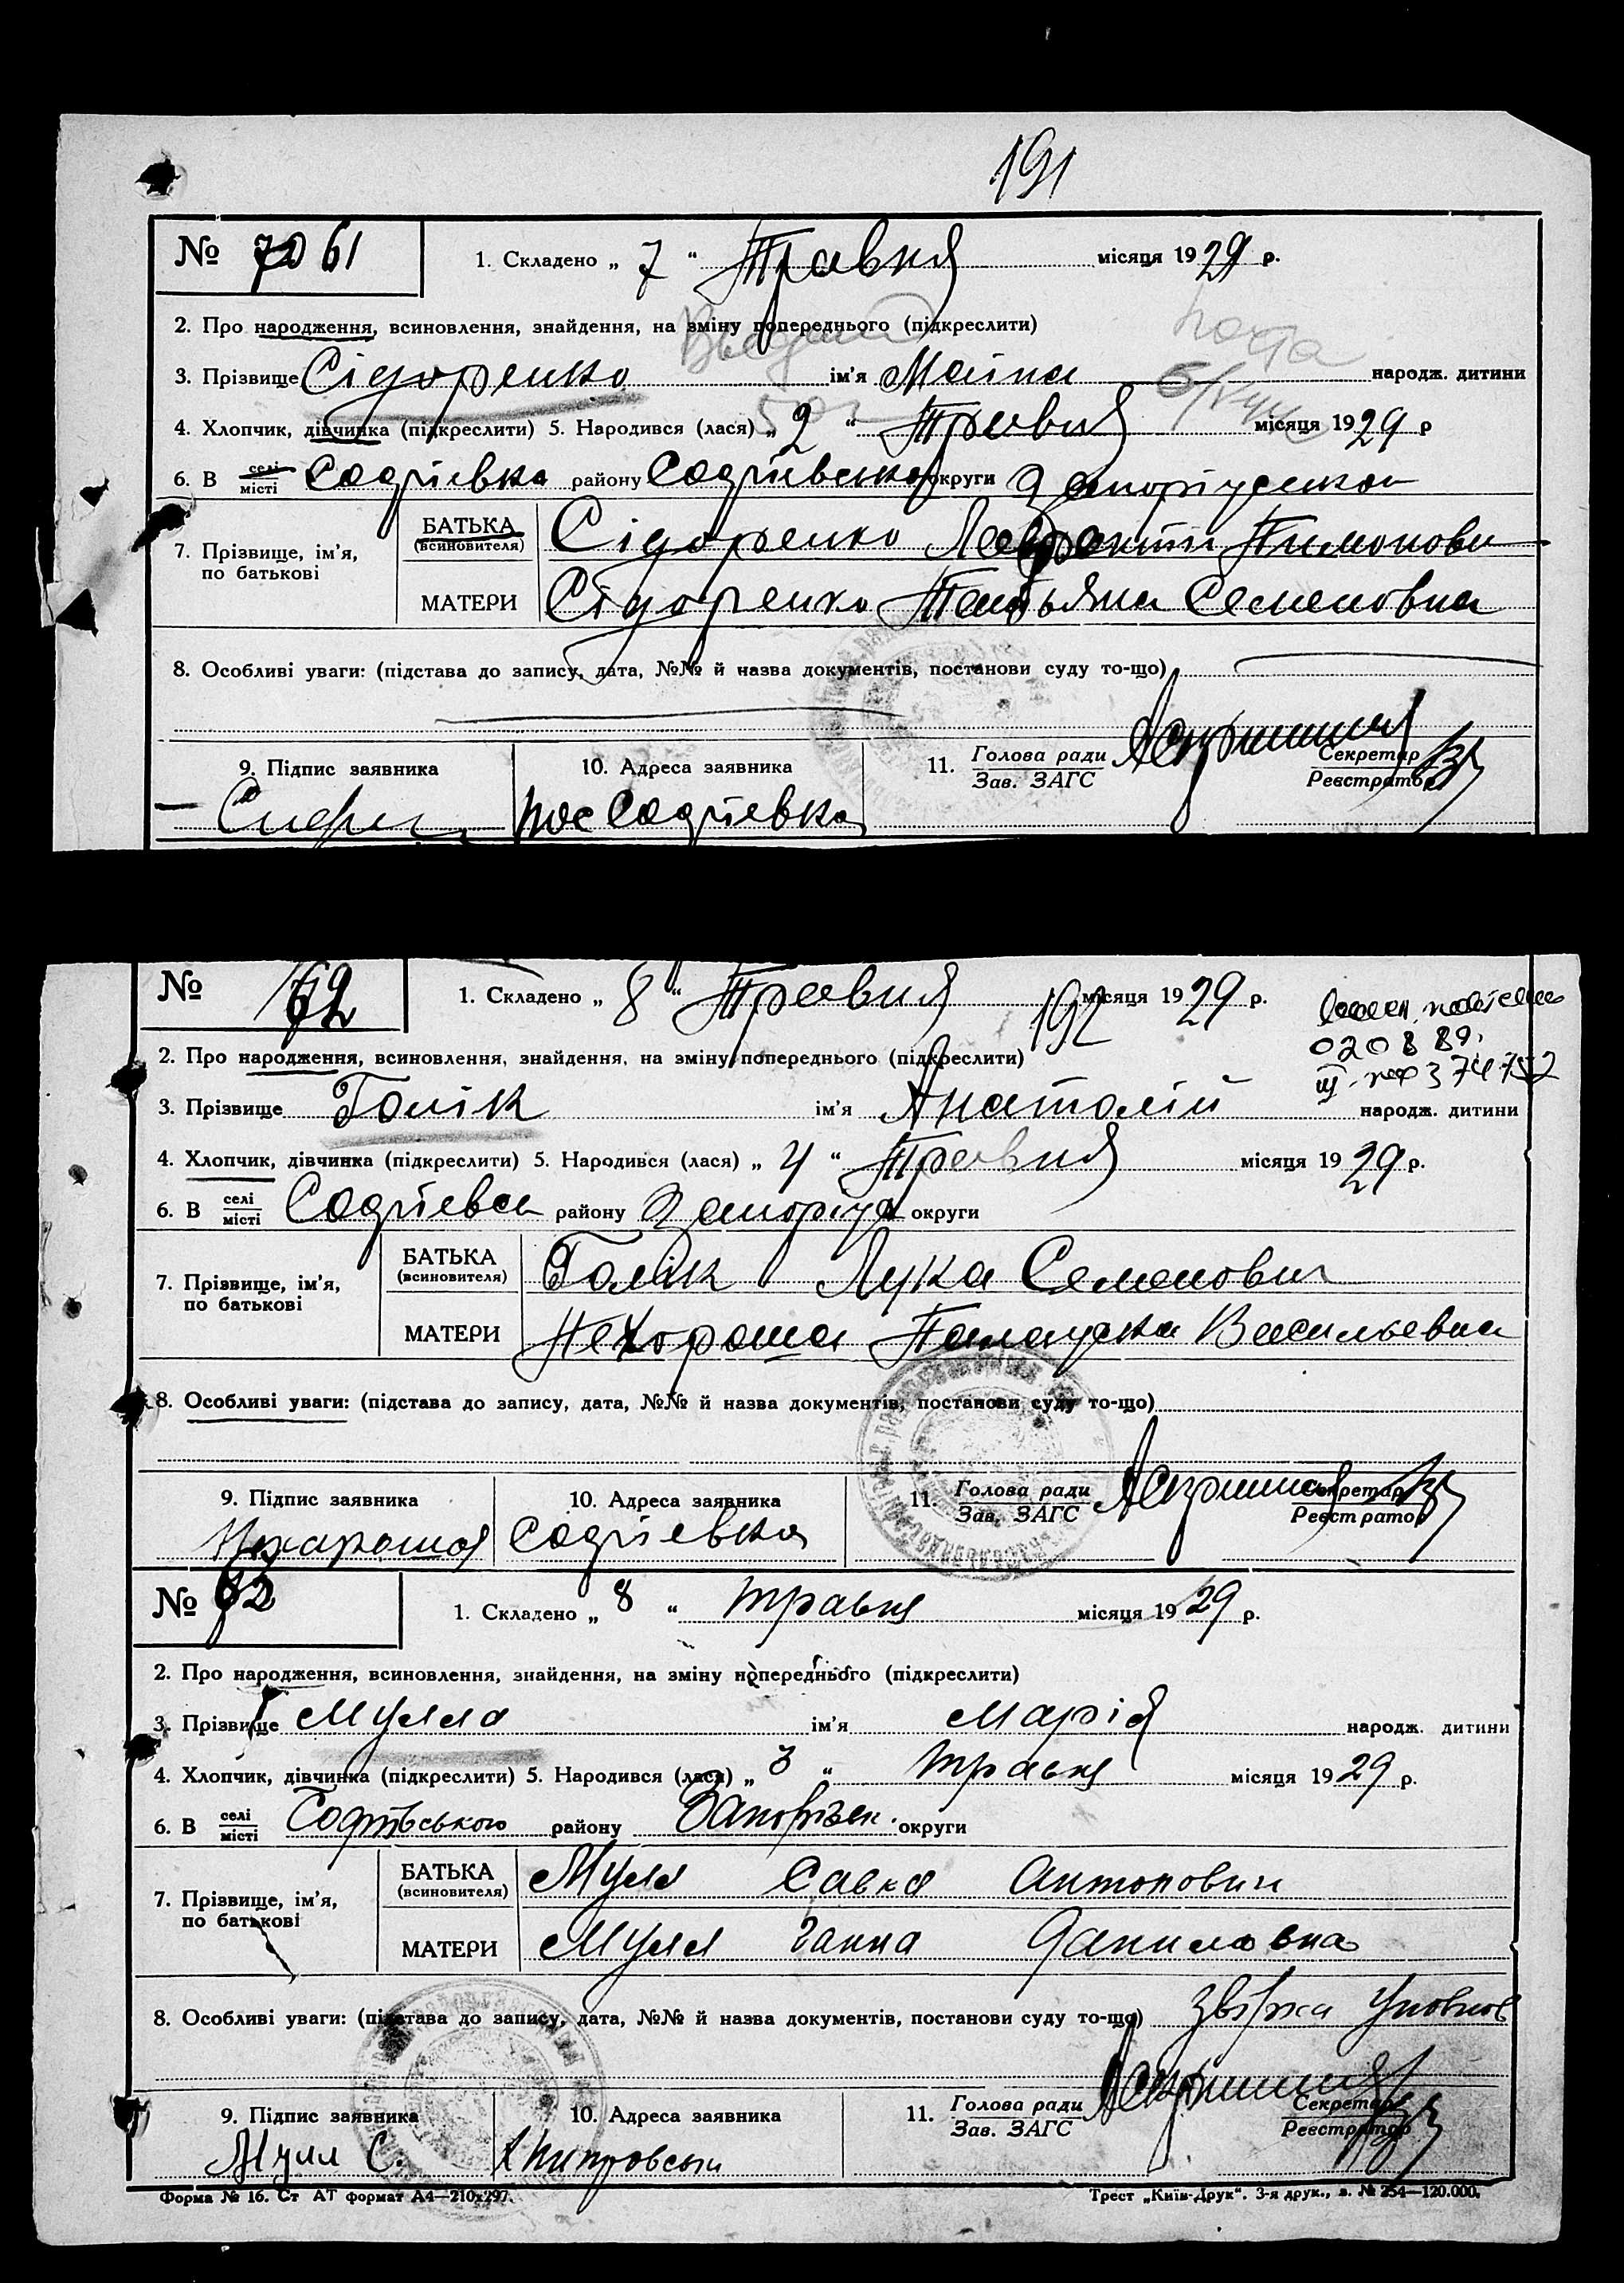 191
№ 61 1. Складено „ 7 “ Травня місяця 1929 р.
2. Про народження, всиновлення, знайдення, на зміну попереднього (підкреслити)
3. Прізвище Сідоренко ім'я Маіна народж. дитини
4. Хлопчик, дівчинка (підкреслити) 5. Народився (лася) „ 2 “ Травня місяця 1929 р
6. В селі місті Софіївка району Софіївська округи
7. Прізвище, ім'я, по батькові
БАТЬКА (всиновителя) Сідоренко Пимонови
МАТЕРИ Сідоренко Татьяна Семеновна
8. Особливі уваги: (підстава до запису, дата, №№ й назва документів, постанови суду то-що)
9. Підпис заявника
10. Адреса заявника Софіевка
11. Голова ради Зав. ЗАГС Секретар Реєстратор
№ 62 1. Складено „ 8 “ Травня місяця 1929 р.
192
2. Про народження, всиновлення, знайдення, на зміну попереднього (підкреслити)
020889.
374752
3. Прізвище Голік ім'я Анатолій народж. дитини
4. Хлопчик, дівчинка (підкреслити) 5. Народився (лася) „ 4 “ Травня місяця 1929 р.
6. В селі місті району округи
7. Прізвище, ім'я, по батькові
БАТЬКА (всиновителя) Голік Лука Семенович
МАТЕРИ Нехороша Васильевна
8. Особливі уваги: (підстава до запису, дата, №№ й назва документів, постанови суду то-що)
9. Підпис заявника Нехарошая
10. Адреса заявника Софіевка
11. Голова ради Зав. ЗАГС Секретар Реєстратор
№ 1. Складено „ 8 “ травня місяця 1929 р.
2. Про народження, всиновлення, знайдення, на зміну попереднього (підкреслити)
3. Прізвище Мулла ім'я Марія народж. дитини
4. Хлопчик, дівчинка (підкреслити) 5. Народився (лася) „ 3 “ травня місяця 1929 р.
6. В селі місті Софіївського району Запорізьк. округи
7. Прізвище, ім'я, по батькові
БАТЬКА (всиновителя) Мулл Савка Антонович
МАТЕРИ Мулл Ганна Даниловна
8. Особливі уваги: (підстава до запису, дата, №№ й назва документів, постанови суду то-що)
9. Підпис заявника Мулл С.
10. Адреса заявника
11. Голова ради Зав. ЗАГС Секретар Реєстратор
Форма № 16. Ст АТ формат А4—210х297.
Трест „Київ-Друк“. 3-я друк., з. № 254—120.000.